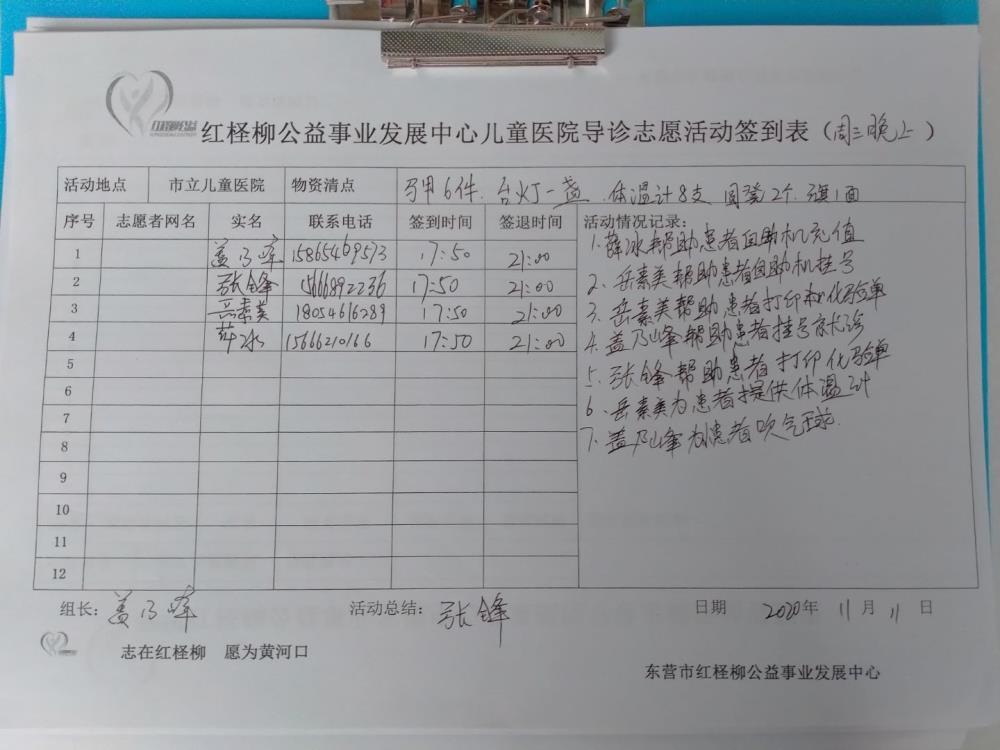 红柽柳公益
红柽柳公益事业发展中心儿童医院导诊志愿活动签到表（周三晚上）
活动地点 市立儿童医院 物资清点 马甲6件、台灯一盏、体温计8支 圆凳2个、旗1面
序号 志愿者网名 实名 联系电话 签到时间 签退时间 活动情况记录：
1 盖乃峰 15865469573 17:50 21:00
2 张锋 15666892236 17:50 21:00
3 岳素美 18054616289 17:50 21:00
4 薛冰 15666210166 17:50 21:00
5
6
7
8
9
10
11
12
1、薛冰帮助患者自助机充值
2、岳素美帮助患者自助机挂号
3、岳素美帮助患者打印化验单
4、盖乃峰帮助患者挂号就诊
5、张锋帮助患者打印化验单
6、岳素美为患者提供体温计
7、盖乃峰为患者吹气球.
组长：盖乃峰 活动总结：张锋 日期 2020年11月11日
志在红柽柳 愿为黄河口
东营市红柽柳公益事业发展中心